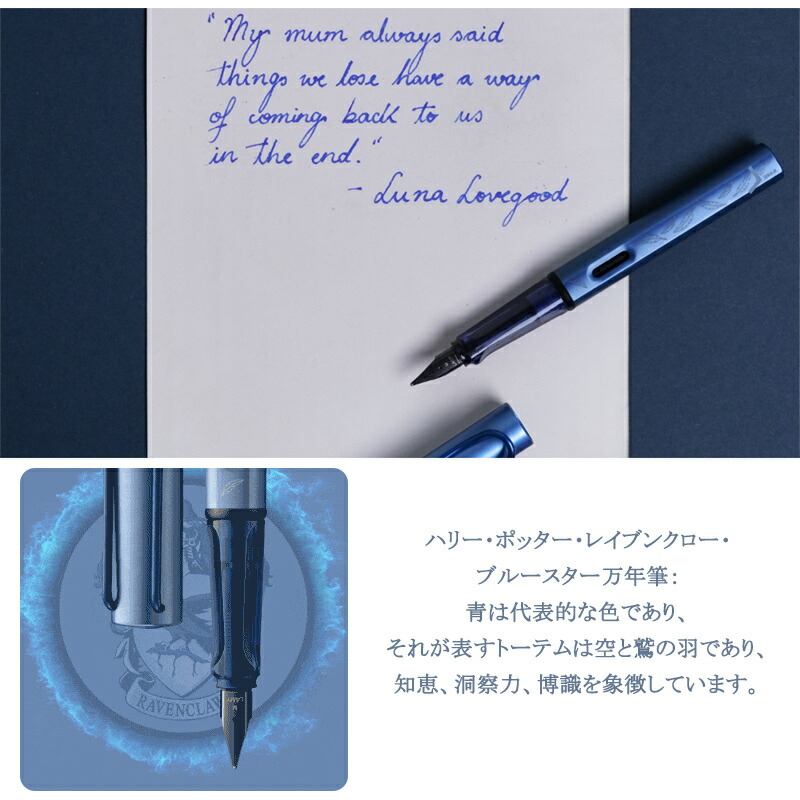 "My mum always said
things we lose have a way
of coming back to us
in the end."
- Luna Lovegood
ハリー・ポッター・レイブンクロー・
ブルースター万年筆：
青は代表的な色であり、
それが表すトーテムは空と鷲の羽であり、
知恵、洞察力、博識を象徴しています。
RAVENCLAW
LAMY